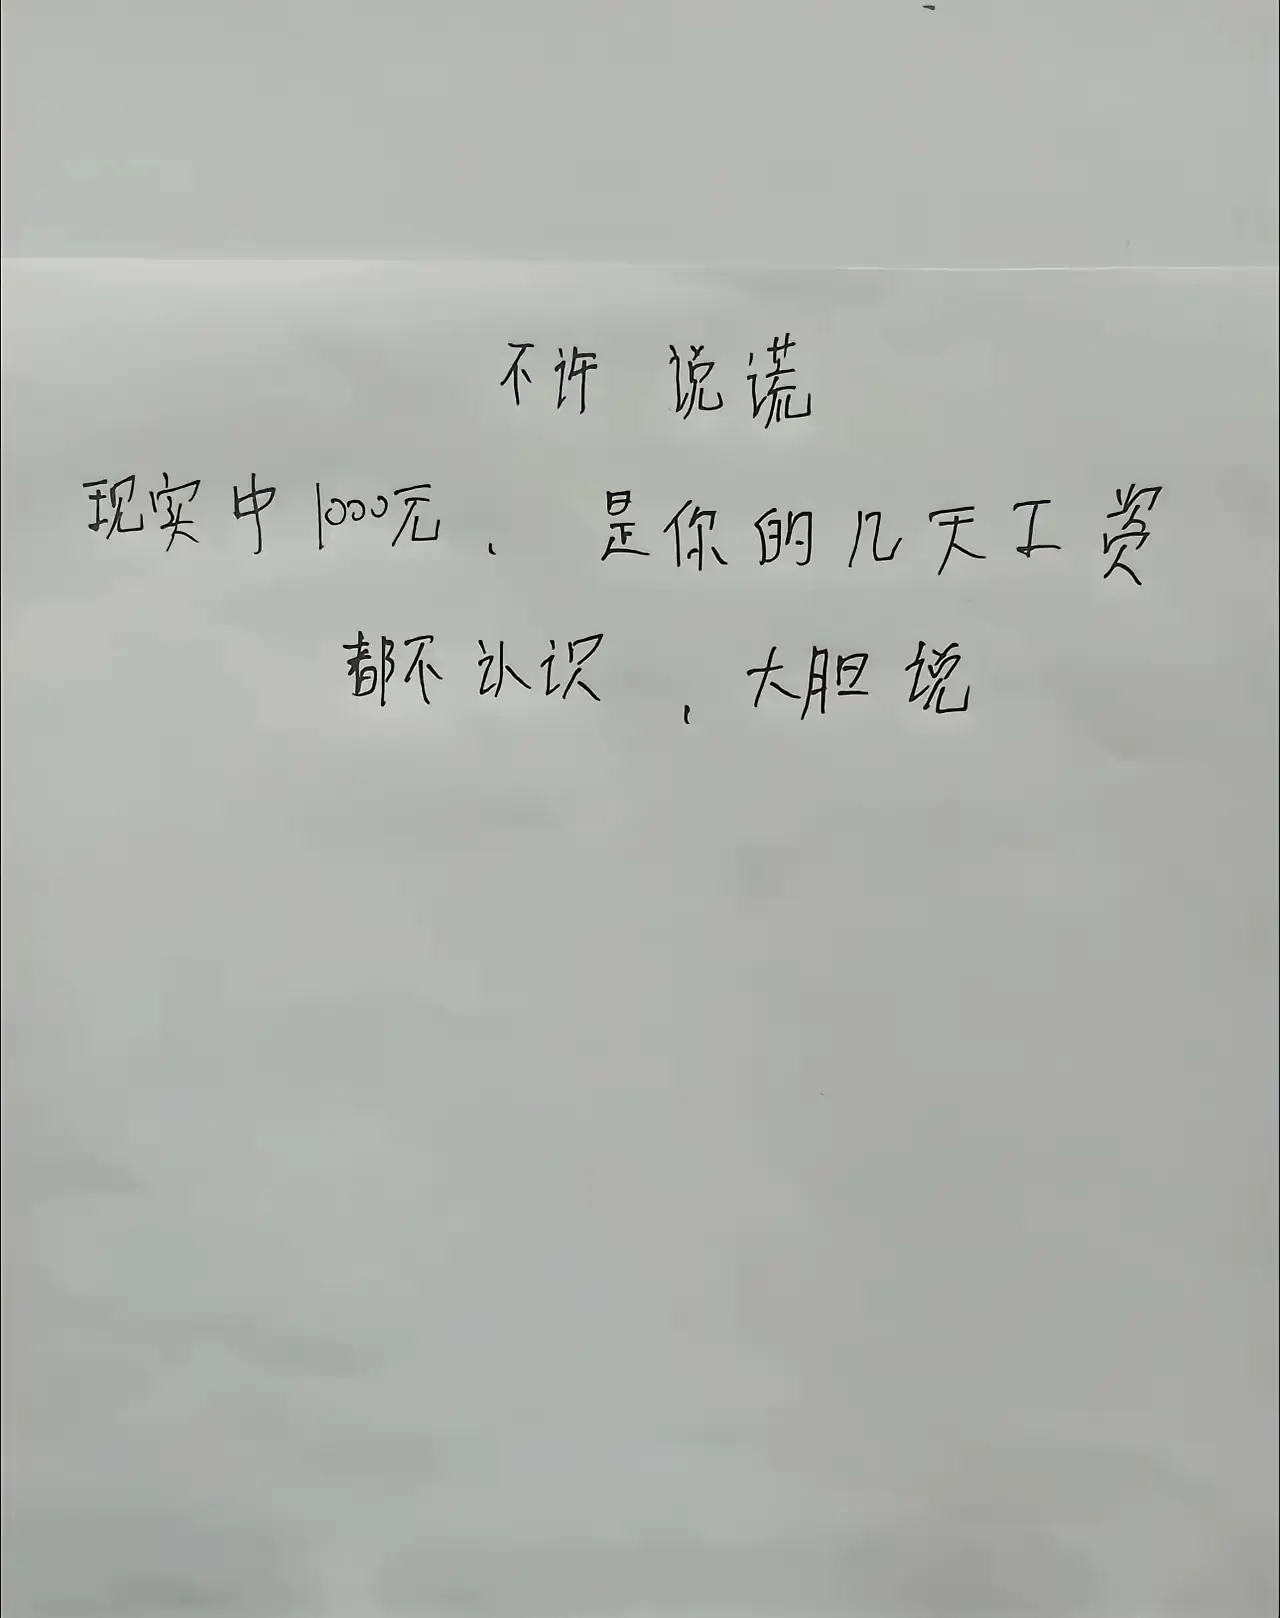 不许说谎
现实中1000元、是你的几天工资
都不认识、大胆说